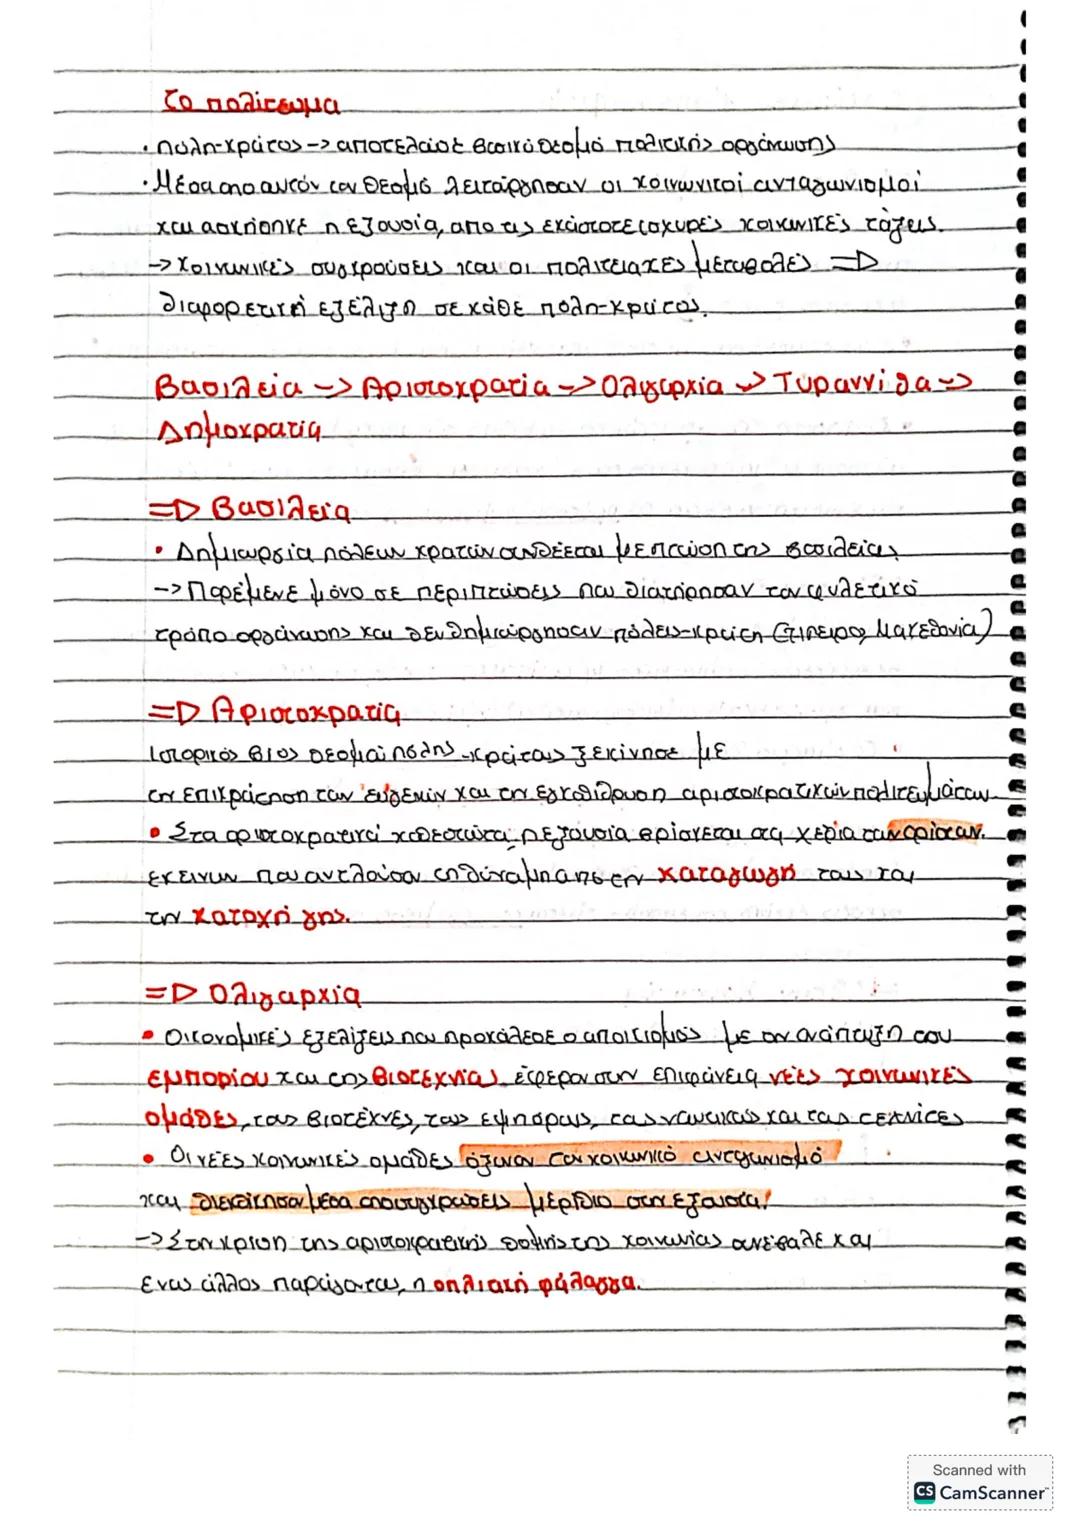 Το πολίτευμα
• πόλη-κράτος -> αποτέλεσε βασικό θεσμό πολιτικής οργάνωσης
• Μέσα από αυτόν τον θεσμό λειτούργησαν οι κοινωνικοί ανταγωνισμοί
και ασκήθηκε η εξουσία, από τις εκάστοτε ισχυρές κοινωνικές τάξεις.
-> κοινωνικές συγκρούσεις και οι πολιτειακές μεταβολές =>
διαφορετική εξέλιξη σε κάθε πόλη-κράτος.
Βασιλεία -> Αριστοκρατία -> Ολιγαρχία -> Τυραννίδα ->
Δημοκρατία
=> Βασιλεία
• Δημιουργία πόλεων κρατών συνδέεται με πτώση της βασιλείας
-> Παρέμενε μόνο σε περιπτώσεις που διατήρησαν τον φυλετικό
τρόπο οργάνωσης και δεν δημιούργησαν πόλεις-κράτη (Ήπειρος, Μακεδονία)
=> Αριστοκρατία
Ιστορικός βίος θεσμού πόλης-κράτους ξεκίνησε με
την επικράτηση των ευγενών και την εγκαθίδρυση αριστοκρατικών πολιτευμάτων
• Στα αριστοκρατικά καθεστώτα, η εξουσία βρίσκεται στα χέρια των αρίστων.
εκείνων που αντλούσαν τη δύναμη από την καταγωγή τους και
την κατοχή γης.
=> Ολιγαρχία
• Οικονομικές εξελίξεις που προκάλεσε ο αποικισμός με την ανάπτυξη του
εμπορίου και της βιοτεχνίας έφεραν στην επιφάνεια νέες κοινωνικές
ομάδες, τους βιοτέχνες, τους εμπόρους, τους ναυτικούς και τους τεχνίτες
• Οι νέες κοινωνικές ομάδες όξυναν τον κοινωνικό ανταγωνισμό
και διεκδίκησαν μέσα από συγκρούσεις μερίδιο στην εξουσία!
-> Στην κρίση της αριστοκρατικής δομής της κοινωνίας συνέβαλε και
ένας άλλος παράγοντας, η οπλιτική φάλαγγα.
Scanned with
CS CamScanner